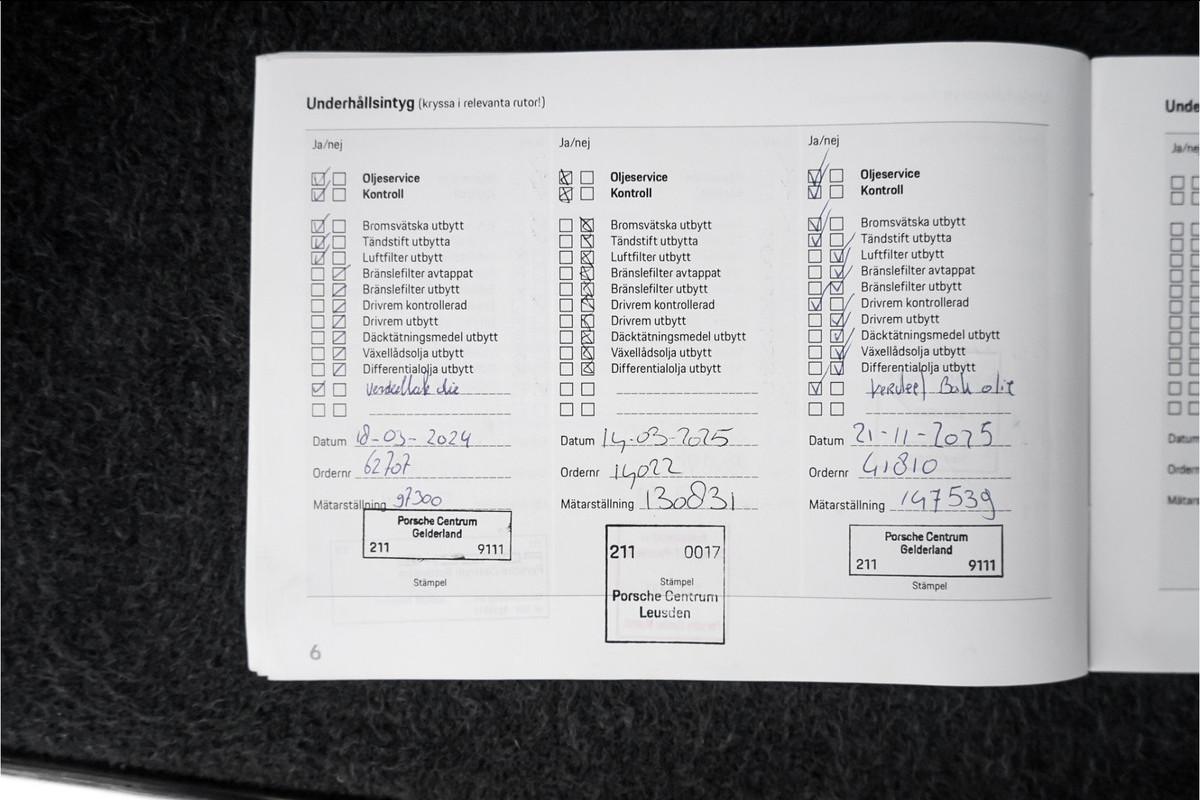 Underhållsintyg (kryssa i relevanta rutor!)
Ja/nej
Oljeservice
Kontroll
Bromsvätska utbytt
Tändstift utbytta
Luftfilter utbytt
Bränslefilter avtappat
Bränslefilter utbytt
Drivrem kontrollerad
Drivrem utbytt
Däcktätningsmedel utbytt
Växellådsolja utbytt
Differentialolja utbytt
Verdeelbak olie
Datum 18-03-2024
Ordernr 62707
Mätarställning 97300
Porsche Centrum
Gelderland
211 9111
Stämpel
6
Ja/nej
Oljeservice
Kontroll
Bromsvätska utbytt
Tändstift utbytta
Luftfilter utbytt
Bränslefilter avtappat
Bränslefilter utbytt
Drivrem kontrollerad
Drivrem utbytt
Däcktätningsmedel utbytt
Växellådsolja utbytt
Differentialolja utbytt
Datum 14-03-2025
Ordernr 14022
Mätarställning 130831
211 0017
Stämpel
Porsche Centrum
Leusden
Ja/nej
Oljeservice
Kontroll
Bromsvätska utbytt
Tändstift utbytta
Luftfilter utbytt
Bränslefilter avtappat
Bränslefilter utbytt
Drivrem kontrollerad
Drivrem utbytt
Däcktätningsmedel utbytt
Växellådsolja utbytt
Differentialolja utbytt
Verdeel Bak olie
Datum 21-11-2025
Ordernr 41810
Mätarställning 147539
Porsche Centrum
Gelderland
211 9111
Stämpel
Unde
Ja/ne
Datum
Orden
Mätars